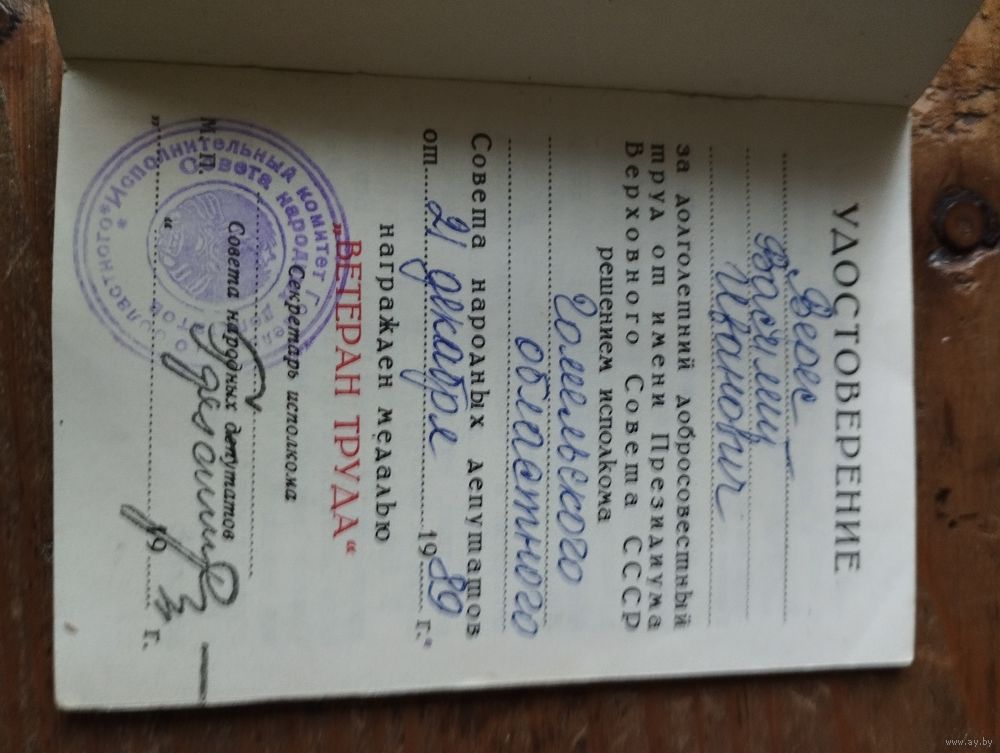 УДОСТОВЕРЕНИЕ
Верес
Василий
Иванович
за долголетний добросовестный
труд от имени Президиума
Верховного Совета СССР
решением исполкома
Гомельского
областного
Совета народных депутатов
от 21 декабря 1989 г.
награжден медалью
„ВЕТЕРАН ТРУДА“
Секретарь исполкома
Совета народных депутатов
М. П.
" " 19 г.
Исполнительный комитет
Совета народ
областного
www.ay.by